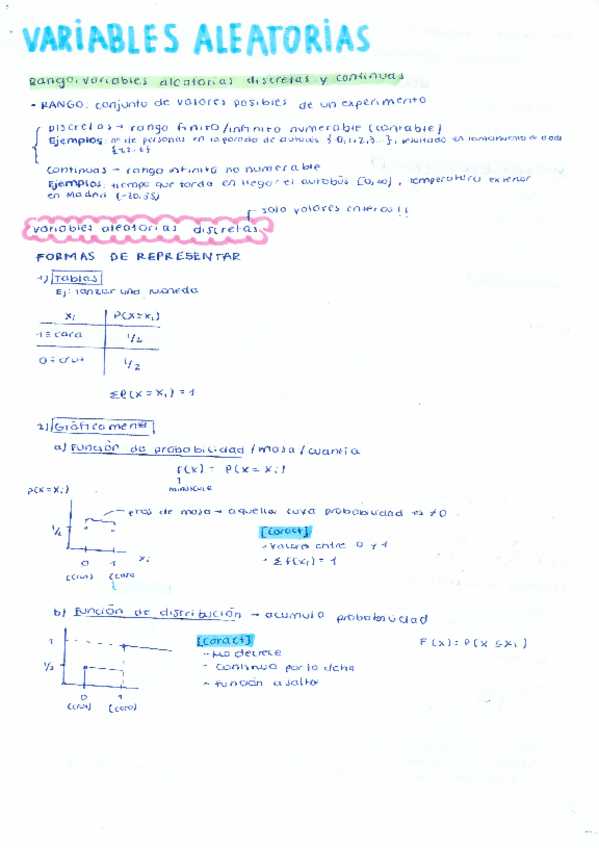 VARIABLES ALEATORIAS
Rango: variables aleatorias discretas y continuas
- RANGO: conjunto de valores posibles de un experimento
Discretas → rango finito/infinito numerable (contable)
Ejemplos: nº de personas en la parada de autobús {0,1,2,3...}, resultado en lanzamiento de dado
Continuas → rango infinito no numerable
Ejemplos: tiempo que tarda en llegar el autobús [0,∞), temperatura exterior
en Madrid (-20,55)
solo valores enteros!!
variables aleatorias discretas
FORMAS DE REPRESENTAR
1) Tablas
Ej: lanzar una moneda
xi P(X=xi)
1 = cara 1/2
0 = cruz 1/2
Σp(x=xi)=1
2) Gráficamente
a) Función de probabilidad/masa/cuantía
f(x) = P(X=xi)
minúscula
P(X=xi)
→ aquellos cuya probabilidad es ≠0
1/2
[Caract]
- Valores entre 0 y 1
- Σf(xi)=1
0 1 xi
(cruz) (cara)
b) Función de distribución → acumula probabilidad
1
[Caract]
F(x)=P(X≤xi)
- No decrece
1/2
- Continua por la dcha
- Función a salto
0 1
(cruz) (cara)